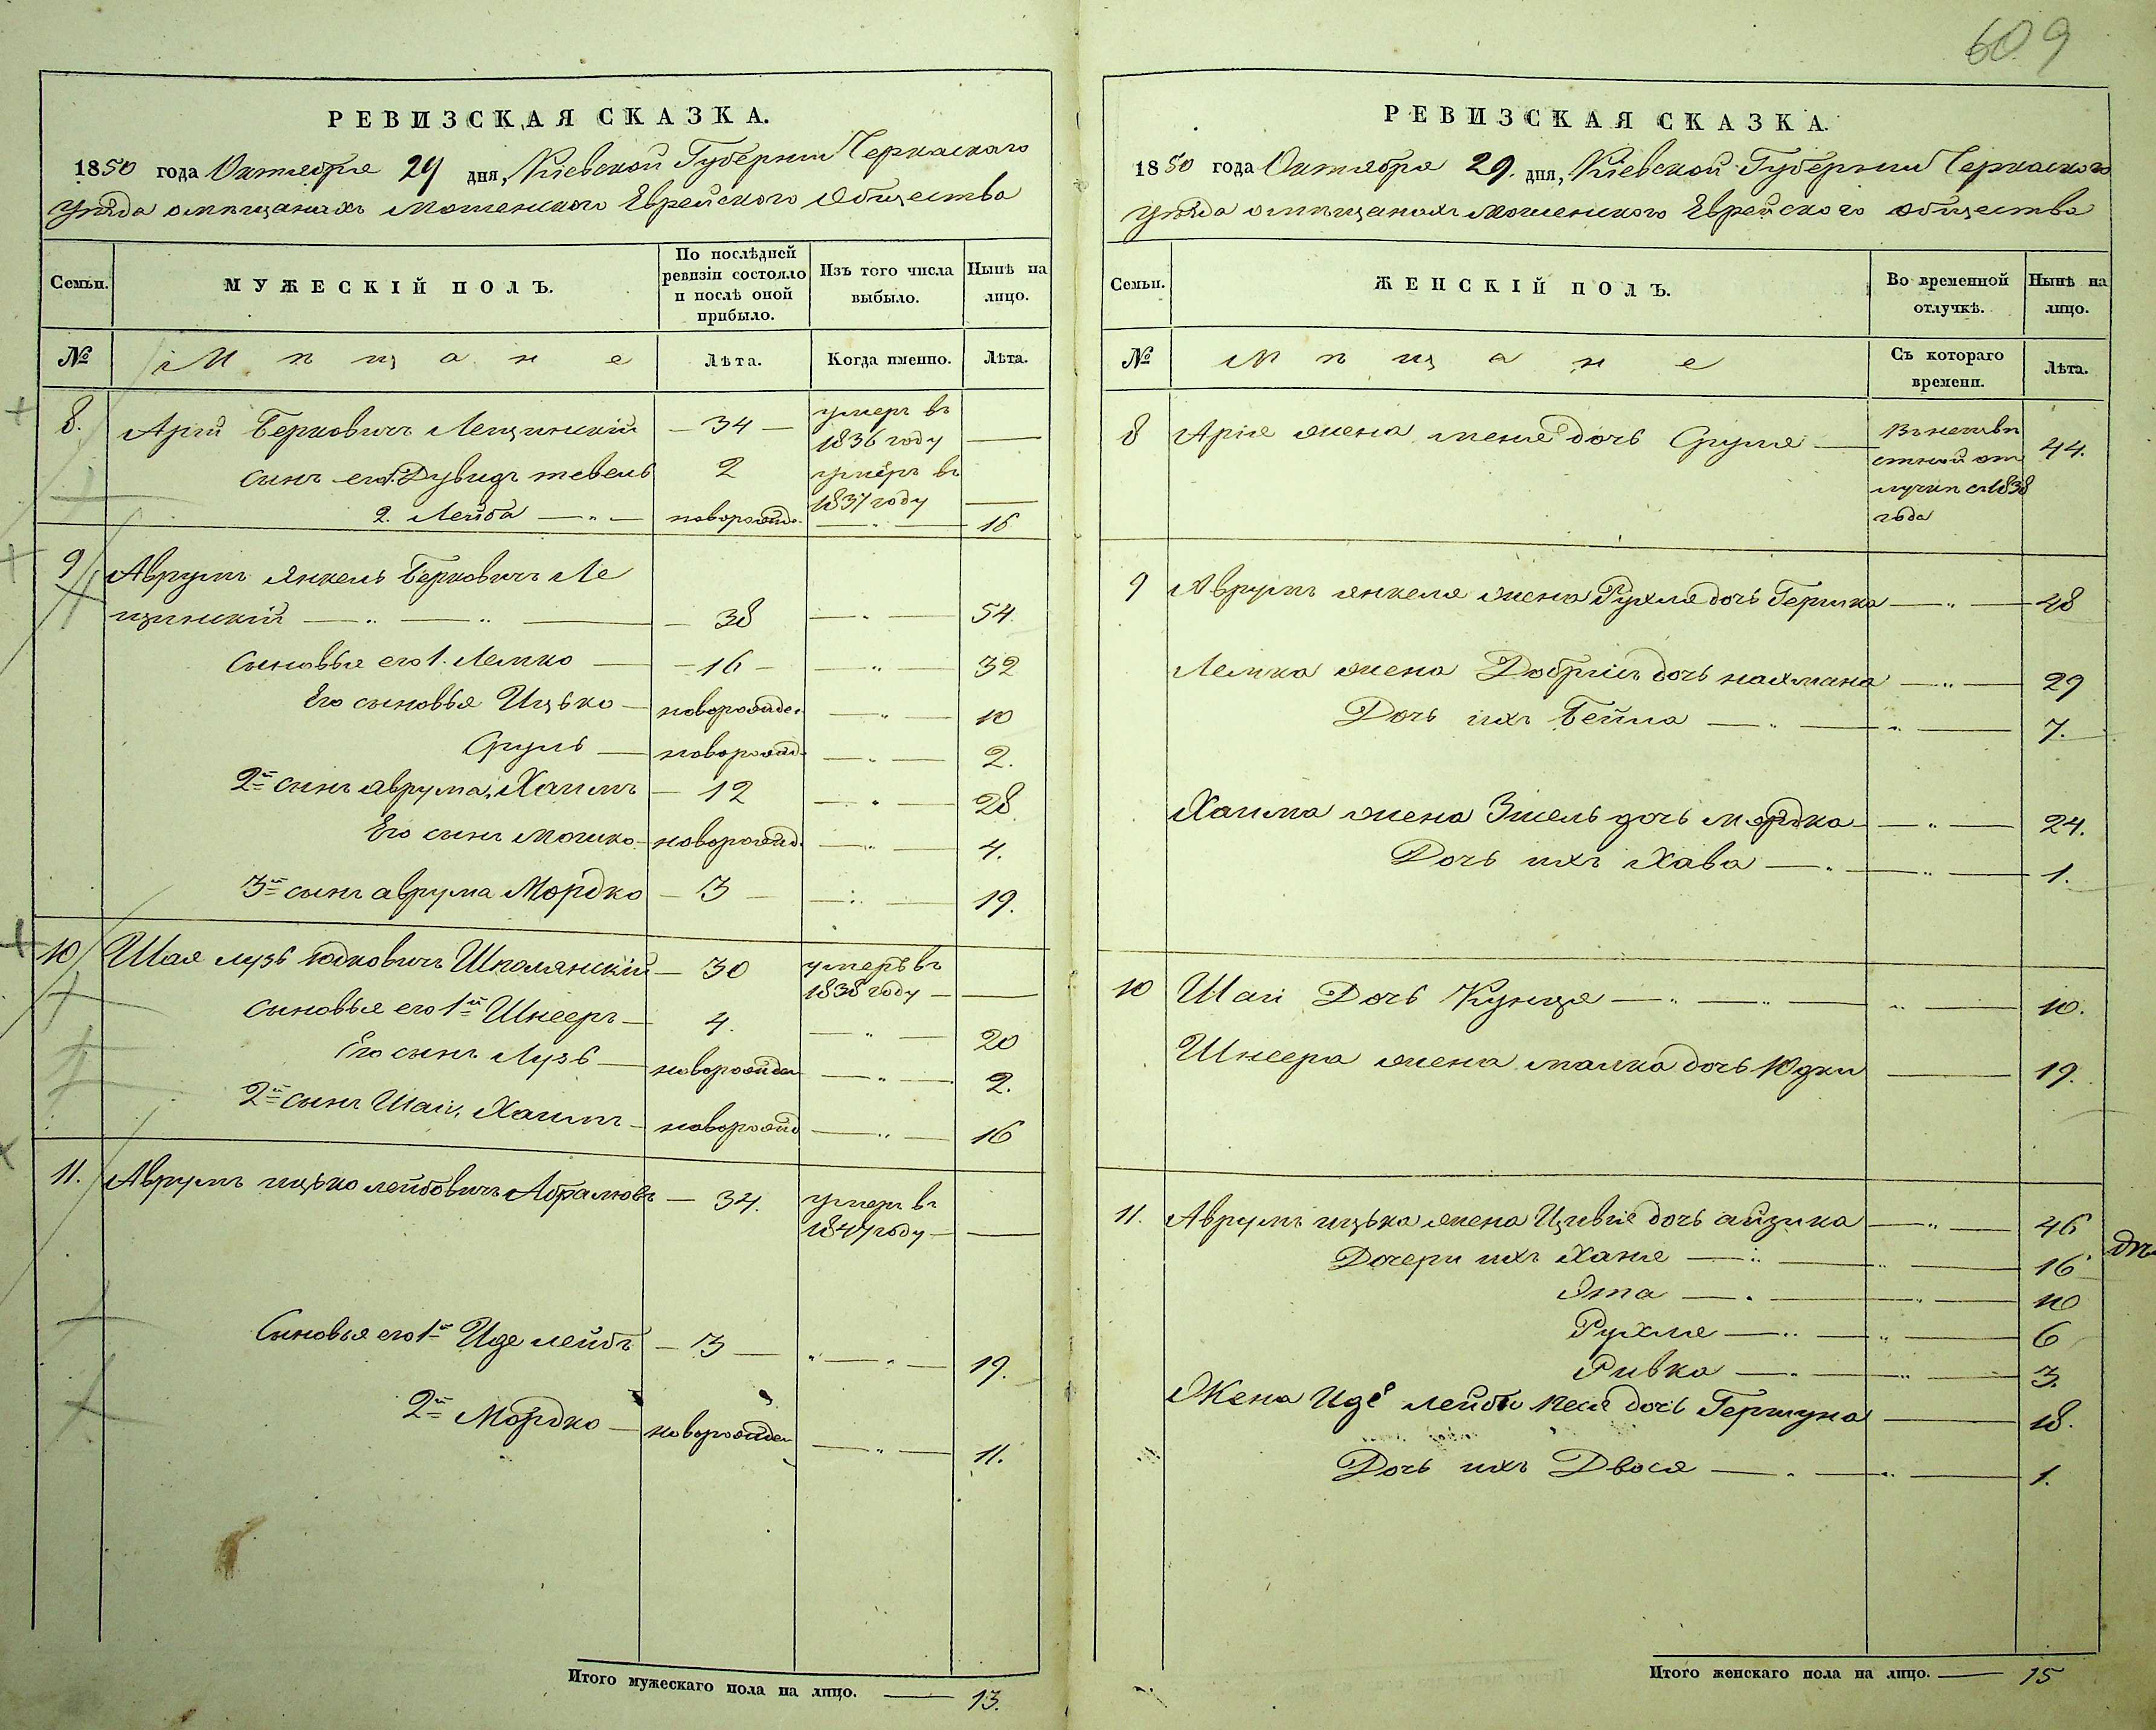 609
РЕВИЗСКАЯ СКАЗКА.
1850 года Октября 29 дня, Кіевской Губерніи Черкаскаго
уѣзда о мѣщанахъ Мошенского Еврейского Общества
Семьи.
МУЖЕСКІЙ ПОЛЪ.
По послѣдней
ревизіи состояло
и послѣ оной
прибыло.
Изъ того числа
выбыло.
Нынѣ на
лицо.
№ Мѣщане Лѣта. Когда именно. Лѣта.
8. Арій Берковичъ Лещинскій — 34 — умеръ въ
1836 году —
сынъ его 1. Дувидъ тевель 2 умеръ въ
1837 году —
2. Лейба — " — новорожд. — " — 16
9 Аврумъ Янкель Берковичъ Ле
щинскій — " — " — 38 — " — 54.
Сыновья его 1. Лемко — 16 — — " — 32
Его сыновья Ицько — новорожден — " — 10
Сруль — новорожд. — " — 2.
2й сынъ аврума, Хаимъ — 12 — " — 28
Его сынъ Мошко — новорожд. — " — 4.
3й сынъ аврума Мордко — 3 — — " — 19.
10 Шая лузь Юдковичъ Шполянскій — 30 умеръ въ
1838 году —
Сыновья его 1й Шнееръ — 4. — " — 20
Его сынъ Лузь — новорожден — " — 2.
2й сынъ Шаи, Хаимъ — новорожд — " — 16
11. Аврумъ ицько лейбовичъ Абрамовъ — 34. умеръ въ
1847 году —
Сыновья его 1й Иде лейбъ — 3 — " — " — 19.
2й Мордко — новорожден — " — 11.
Итого мужескаго пола на лицо. — 13.
РЕВИЗСКАЯ СКАЗКА.
1850 года Октября 29. дня, Кіевской Губерніи Черкаского
уѣзда о мѣщанахъ Мошенского Еврейского общества
Семьи.
ЖЕНСКІЙ ПОЛЪ.
Во временной
отлучкѣ.
Нынѣ на
лицо.
№ Мѣщане
Съ котораго
времени.
Лѣта.
8 Арія жена дочь Сруля — 44.
лучкѣ съ 1838
года
9 Аврумъ янкеля жена Рухля дочь Гершка — " — 48
Лемка жена дочь нахмана — " — 29
Дочь ихъ Бейла — " — " — 7.
Хаима жена дочь Мордка — " — 24.
Дочь ихъ Хава — " — " — 1.
10 Шаи Дочь Кунця — " — " — " — 10.
Шнеера жена малка дочь Юдки — 19.
11. Аврумъ ицька жена Цивье дочь айзика — " — 46
Дочери ихъ Ханя — " — " — 16
Ята — " — " — 10
Рухля — " — " — 6
Ривка — " — " — 3.
Жена Иде лейбы дочь Гершуна — 18.
Дочь ихъ Двося — " — " — 1.
Итого женскаго пола на лицо. — 15